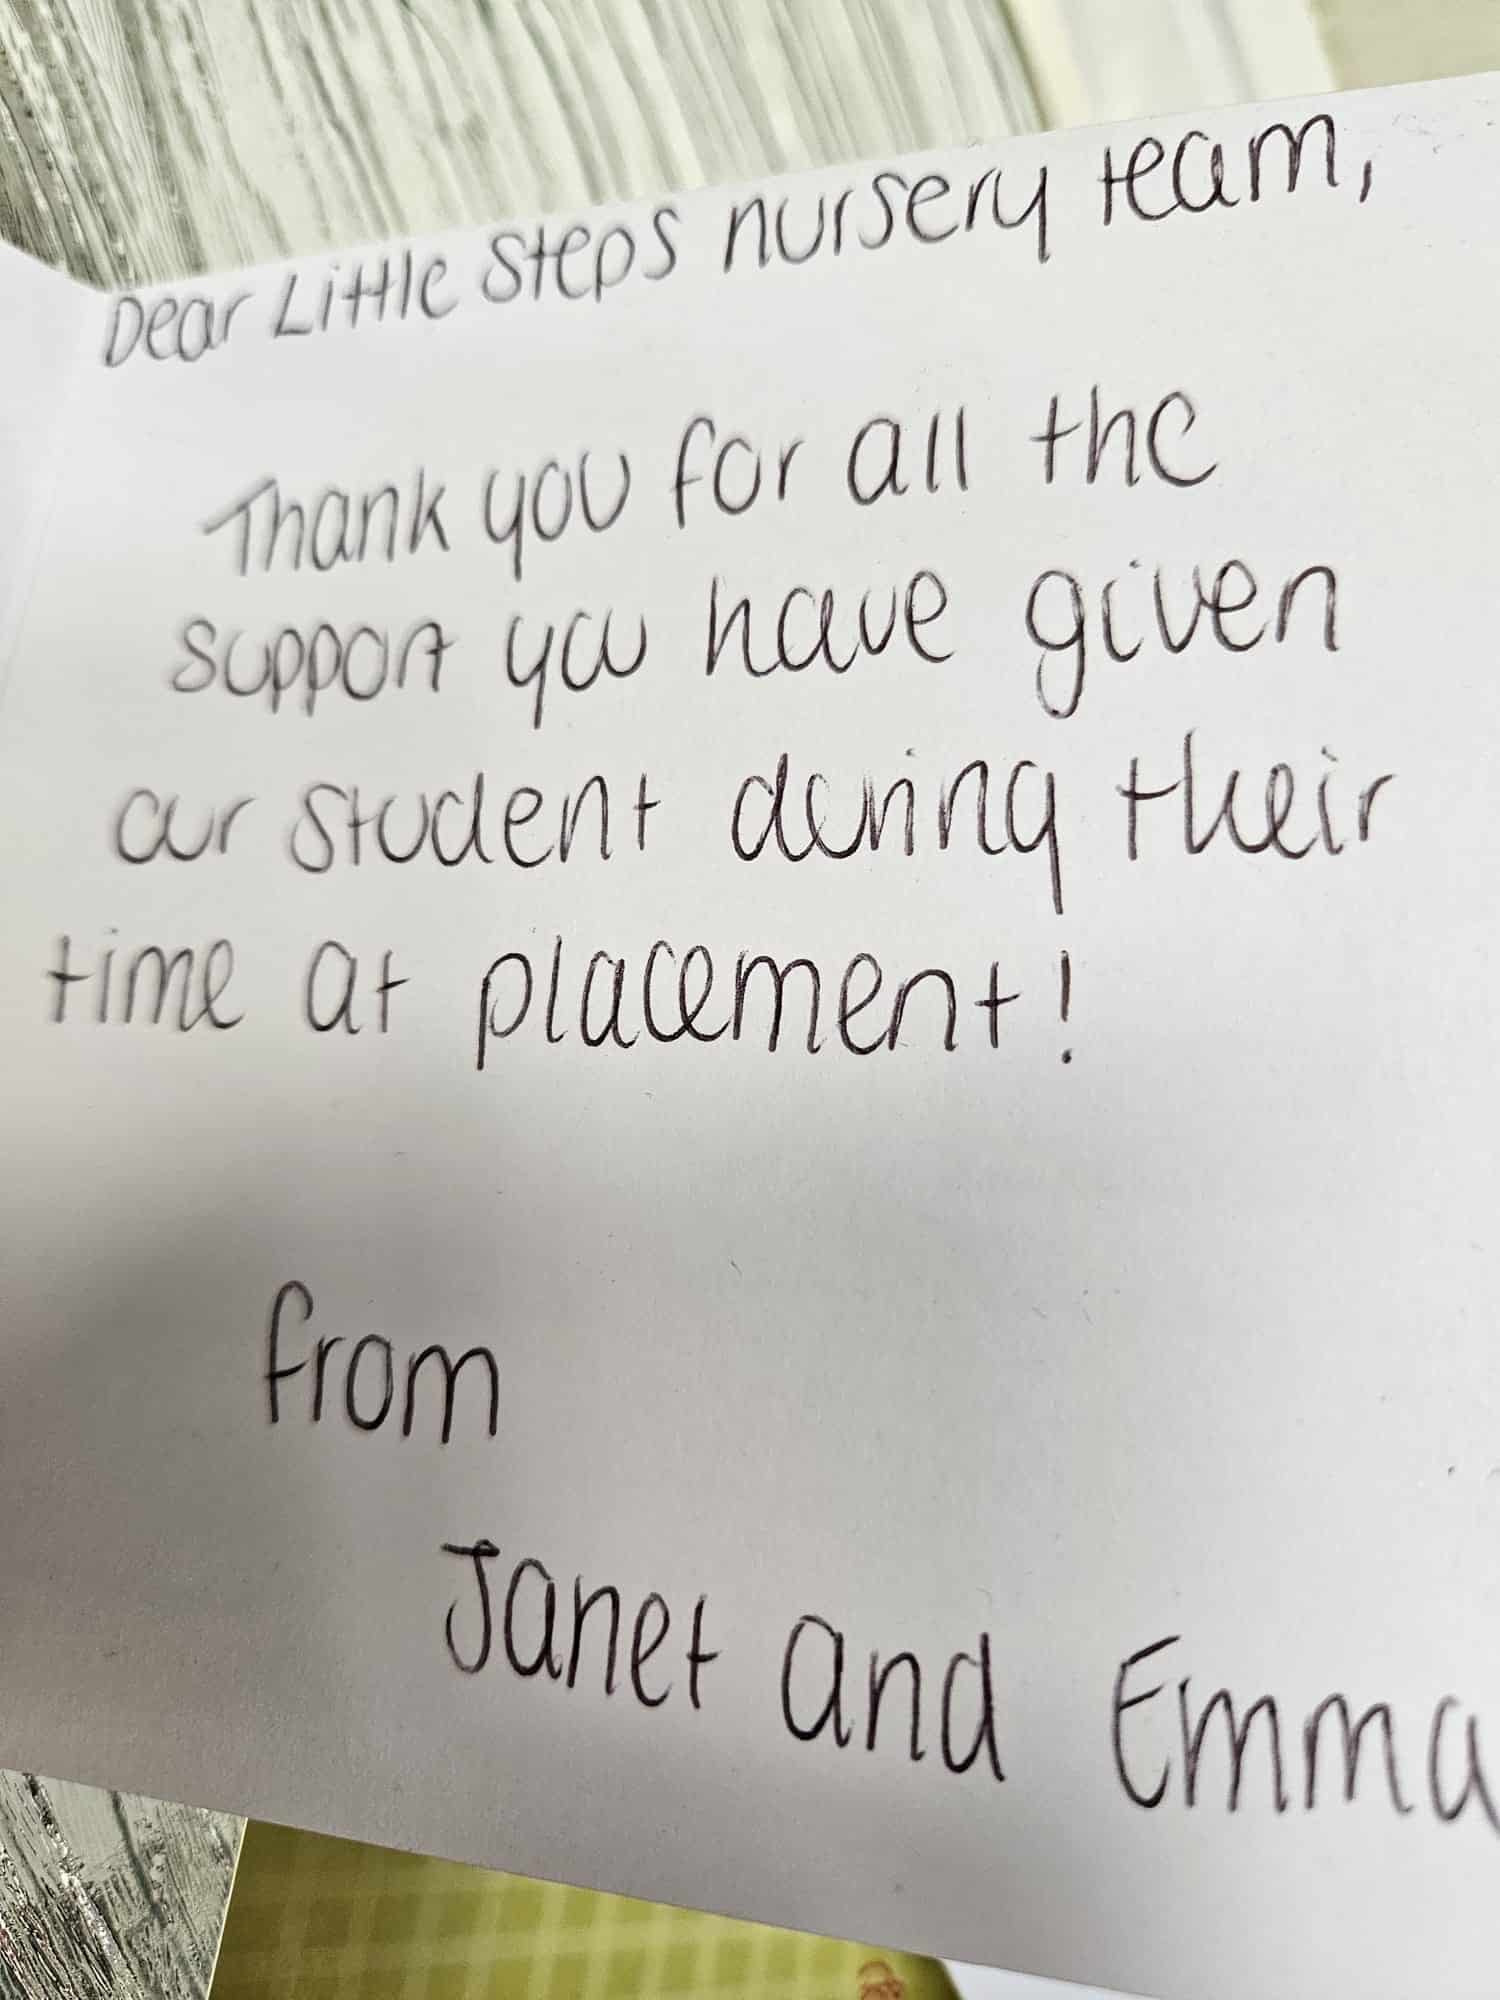 Dear Little Steps nursery team,
Thank you for all the
support you have given
our student during their
time at placement!
from
Janet and Emma